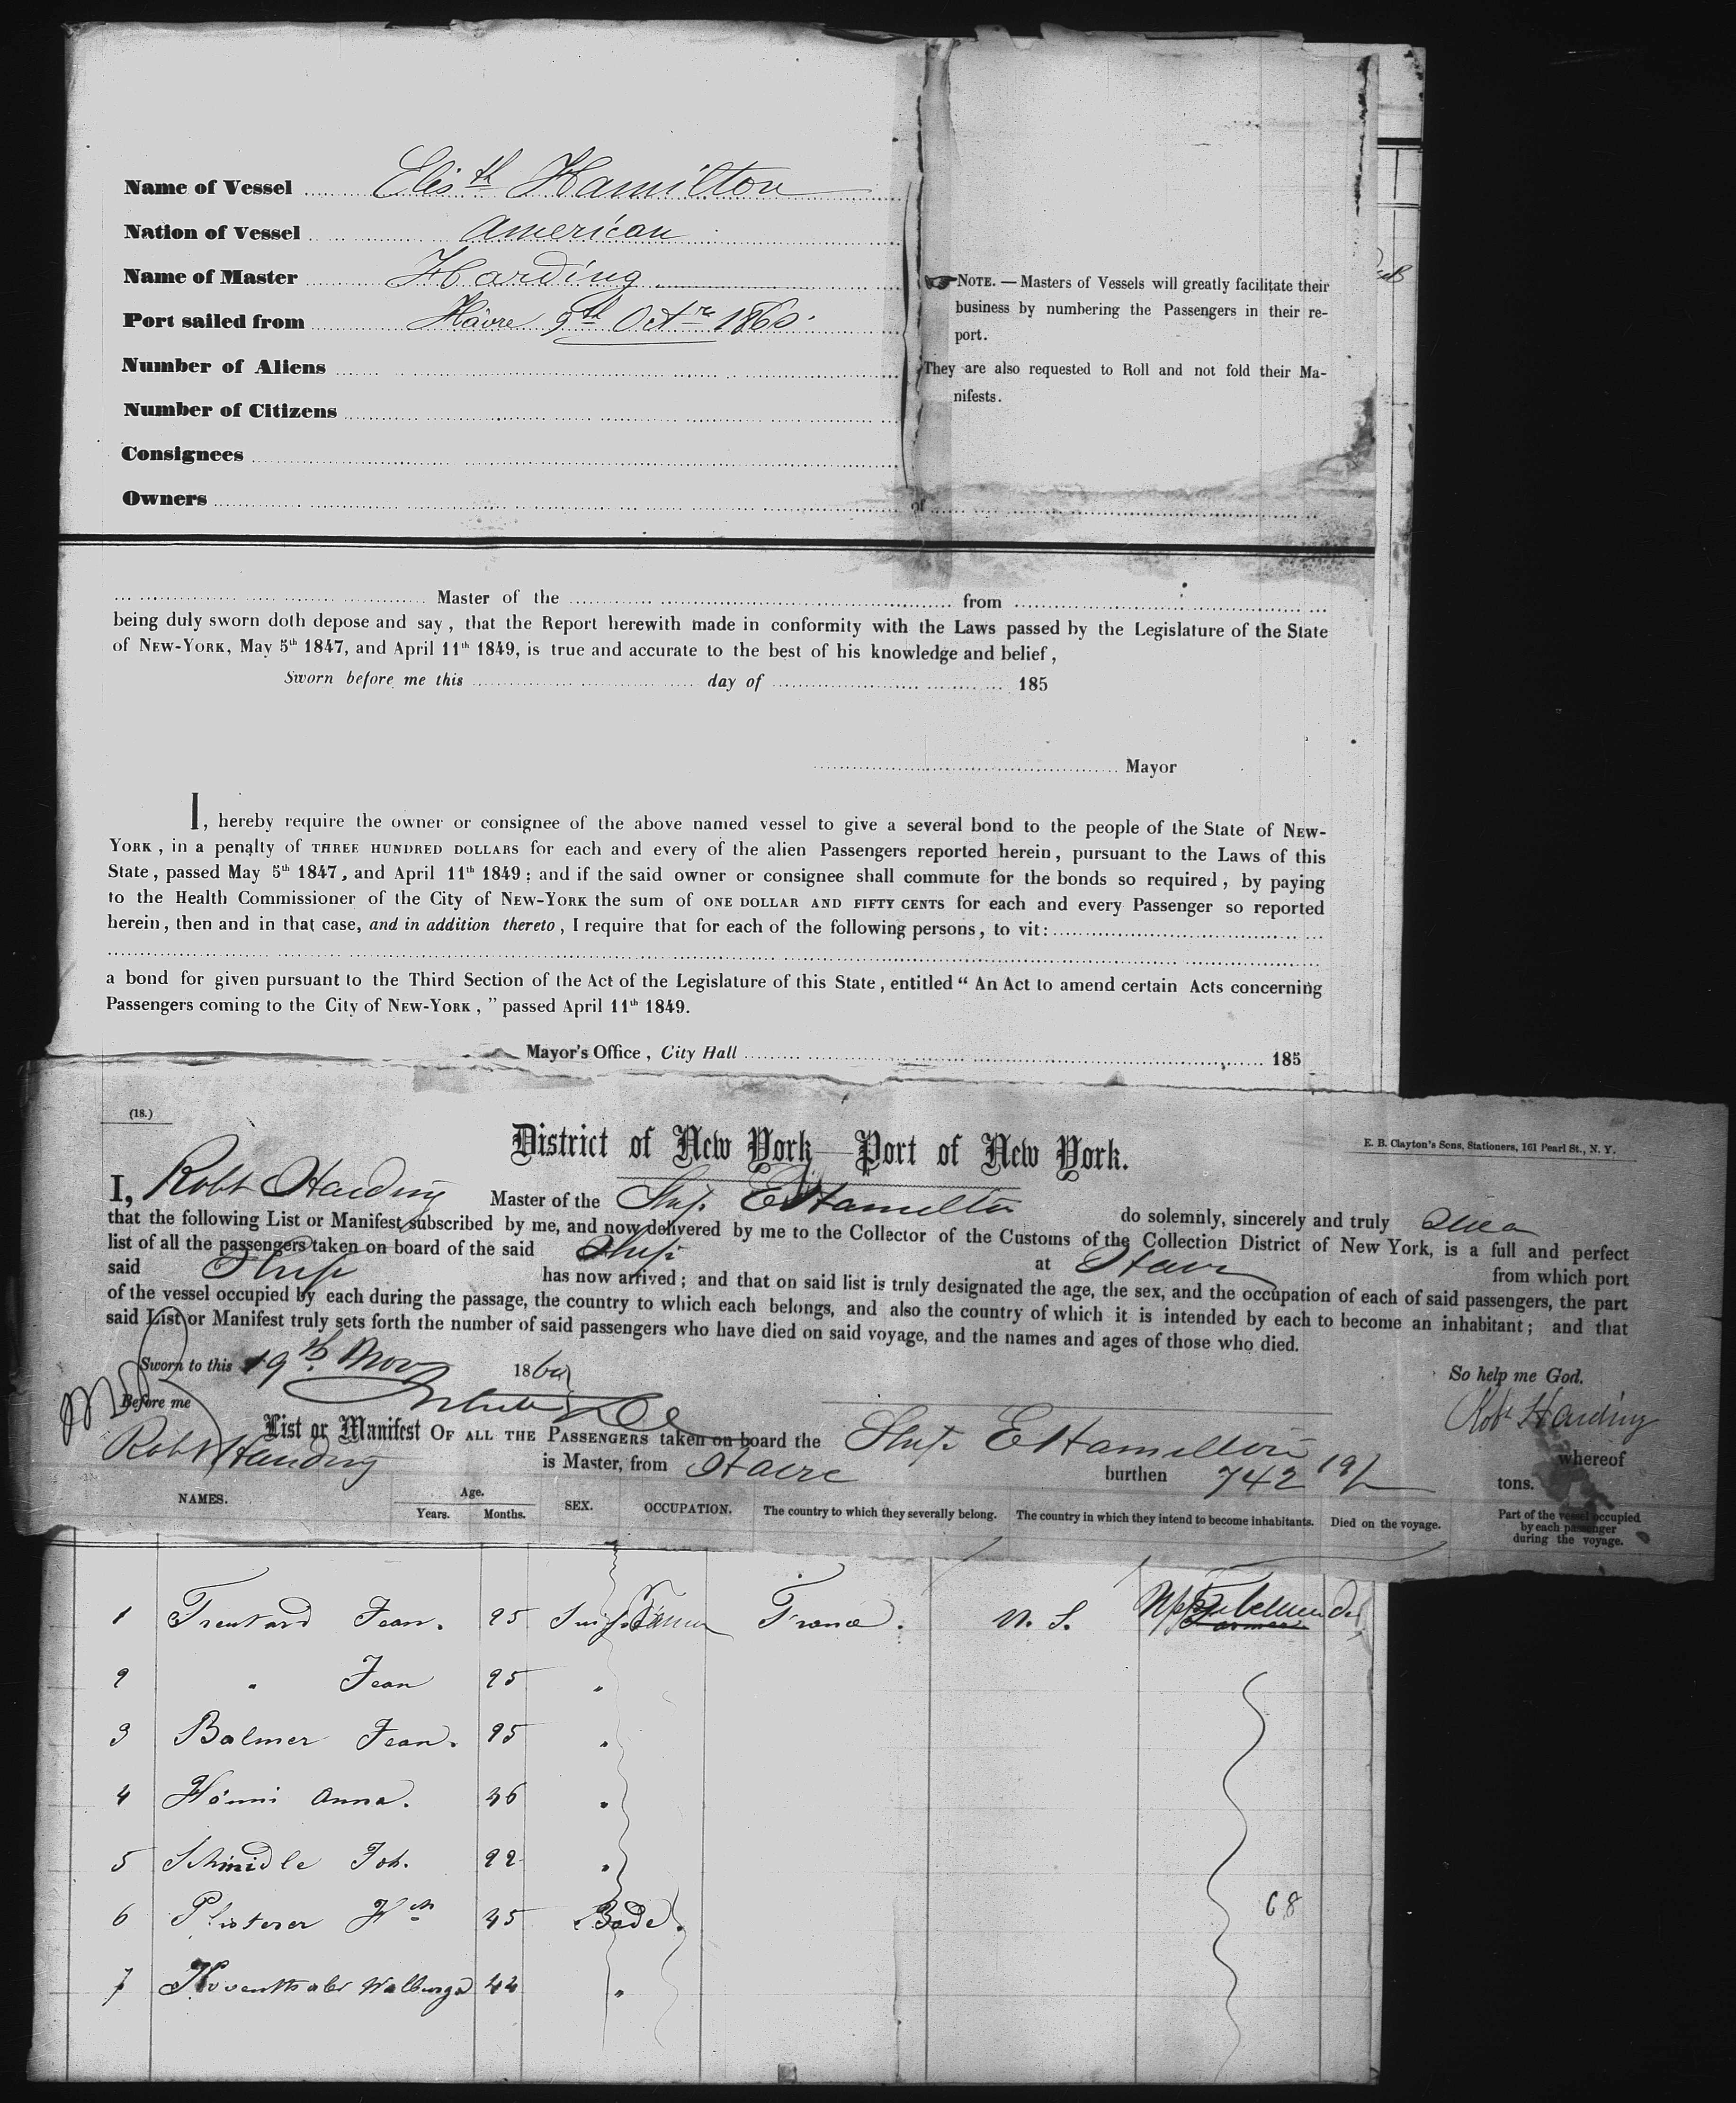 Name of Vessel Elisth Hamilton
Nation of Vessel American
Name of Master Harding
Port sailed from Hâvre 9th Octre 1860.
Number of Aliens
Number of Citizens
Consignees
Owners of
NOTE. — Masters of Vessels will greatly facilitate their
business by numbering the Passengers in their re-
port.
They are also requested to Roll and not fold their Ma-
nifests.
Master of the from
being duly sworn doth depose and say, that the Report herewith made in conformity with the Laws passed by the Legislature of the State
of NEW-YORK, May 5th 1847, and April 11th 1849, is true and accurate to the best of his knowledge and belief,
Sworn before me this day of 185
Mayor
I, hereby require the owner or consignee of the above named vessel to give a several bond to the people of the State of NEW-
YORK, in a penalty of THREE HUNDRED DOLLARS for each and every of the alien Passengers reported herein, pursuant to the Laws of this
State, passed May 5th 1847, and April 11th 1849; and if the said owner or consignee shall commute for the bonds so required, by paying
to the Health Commissioner of the City of NEW-YORK the sum of ONE DOLLAR AND FIFTY CENTS for each and every Passenger so reported
herein, then and in that case, and in addition thereto, I require that for each of the following persons, to vit:
a bond for given pursuant to the Third Section of the Act of the Legislature of this State, entitled “ An Act to amend certain Acts concerning
Passengers coming to the City of NEW-YORK, ” passed April 11th 1849.
Mayor's Office, City Hall 185
(18.)
District of New York—Port of New York.
E. B. Clayton's Sons, Stationers, 161 Pearl St., N. Y.
I, Robt Harding Master of the Ship E Hamilton do solemnly, sincerely and truly swear
that the following List or Manifest subscribed by me, and now delivered by me to the Collector of the Customs of the Collection District of New York, is a full and perfect
list of all the passengers taken on board of the said Ship at Havre from which port
said Ship has now arrived; and that on said list is truly designated the age, the sex, and the occupation of each of said passengers, the part
of the vessel occupied by each during the passage, the country to which each belongs, and also the country of which it is intended by each to become an inhabitant; and that
said List or Manifest truly sets forth the number of said passengers who have died on said voyage, and the names and ages of those who died.
Sworn to this 19th Nov 1860
So help me God.
Before me
Robt Harding
List or Manifest OF ALL THE PASSENGERS taken on board the Ship E Hamilton whereof
Robt Harding is Master, from Havre burthen 742 19/ tons.
NAMES. Age. Years. Months. SEX. OCCUPATION. The country to which they severally belong. The country in which they intend to become inhabitants. Died on the voyage. Part of the vessel occupied by each passenger during the voyage.
1 Jean. 25 France. U. S.
2 " Jean 25 "
3 Balmer Jean. 25 "
4 Hönni Anna. 46 "
5 Schmidle Joh. 22 "
6 Pfisterer 45 Bade.
68
7 Walburga 44 "